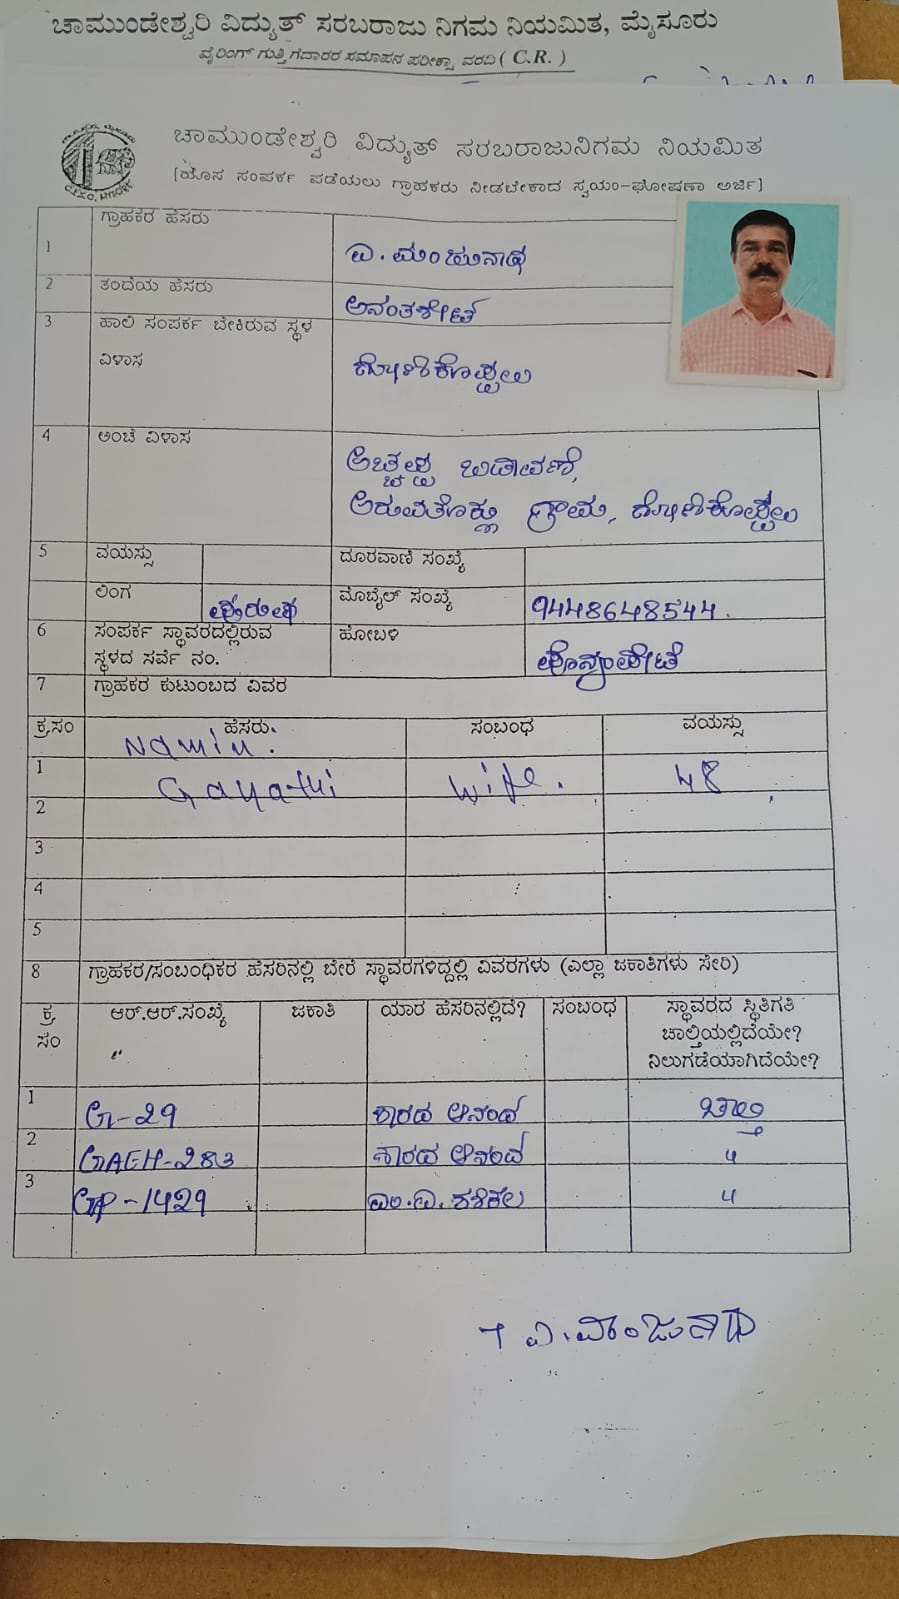 ಚಾಮುಂಡೇಶ್ವರಿ ವಿದ್ಯುತ್ ಸರಬರಾಜು ನಿಗಮ ನಿಯಮಿತ, ಮೈಸೂರು
ವೈರಿಂಗ್ ಗುತ್ತಿಗೆದಾರರ ಸಮಾಪನ ಪರೀಕ್ಷಾ ವರದಿ ( C.R. )
ಚಾಮುಂಡೇಶ್ವರಿ ವಿದ್ಯುತ್ ಸರಬರಾಜುನಿಗಮ ನಿಯಮಿತ
[ಹೊಸ ಸಂಪರ್ಕ ಪಡೆಯಲು ಗ್ರಾಹಕರು ನೀಡಬೇಕಾದ ಸ್ವಯಂ-ಘೋಷಣಾ ಅರ್ಜಿ]
1 ಗ್ರಾಹಕರ ಹೆಸರು ಎ. ಮಂಜುನಾಥ
2 ತಂದೆಯ ಹೆಸರು ಅನಂತಶೇಟ್
3 ಹಾಲಿ ಸಂಪರ್ಕ ಬೇಕಿರುವ ಸ್ಥಳ
ವಿಳಾಸ ಗೋಣಿಕೊಪ್ಪಲು
4 ಅಂಚೆ ವಿಳಾಸ ಅಚ್ಚಪ್ಪ ಬಡಾವಣೆ,
ಅರುವತೊಕ್ಲು ಗ್ರಾಮ, ಗೋಣಿಕೊಪ್ಪಲು
5 ವಯಸ್ಸು ದೂರವಾಣಿ ಸಂಖ್ಯೆ
ಲಿಂಗ ಪುರುಷ ಮೊಬೈಲ್ ಸಂಖ್ಯೆ 9448648544.
6 ಸಂಪರ್ಕ ಸ್ಥಾವರದಲ್ಲಿರುವ ಹೋಬಳಿ ಪೊನ್ನಂಪೇಟೆ
ಸ್ಥಳದ ಸರ್ವೆ ನಂ.
7 ಗ್ರಾಹಕರ ಕುಟುಂಬದ ವಿವರ
ಕ್ರ.ಸಂ ಹೆಸರು ಸಂಬಂಧ ವಯಸ್ಸು
1 Gayathri wife. 48
2
3
4
5
8 ಗ್ರಾಹಕರ/ಸಂಬಂಧಿಕರ ಹೆಸರಿನಲ್ಲಿ ಬೇರೆ ಸ್ಥಾವರಗಳಿದ್ದಲ್ಲಿ ವಿವರಗಳು (ಎಲ್ಲಾ ಜಕಾತಿಗಳು ಸೇರಿ)
ಕ್ರ ಸಂ ಆರ್.ಆರ್.ಸಂಖ್ಯೆ ಜಕಾತಿ ಯಾರ ಹೆಸರಿನಲ್ಲಿದೆ? ಸಂಬಂಧ ಸ್ಥಾವರದ ಸ್ಥಿತಿಗತಿ
ಚಾಲ್ತಿಯಲ್ಲಿದೆಯೇ?
ನಿಲುಗಡೆಯಾಗಿದೆಯೇ?
1 G-29 ಶಾರದ ಆನಂದ ಚಾಲ್ತಿ
2 GAEH-283 ಶಾರದ ಆನಂದ "
3 GP-1429 ಎಂ.ಎ. ಶಶಿಕಲ "
ಎ.ಮಂಜುನಾಥ